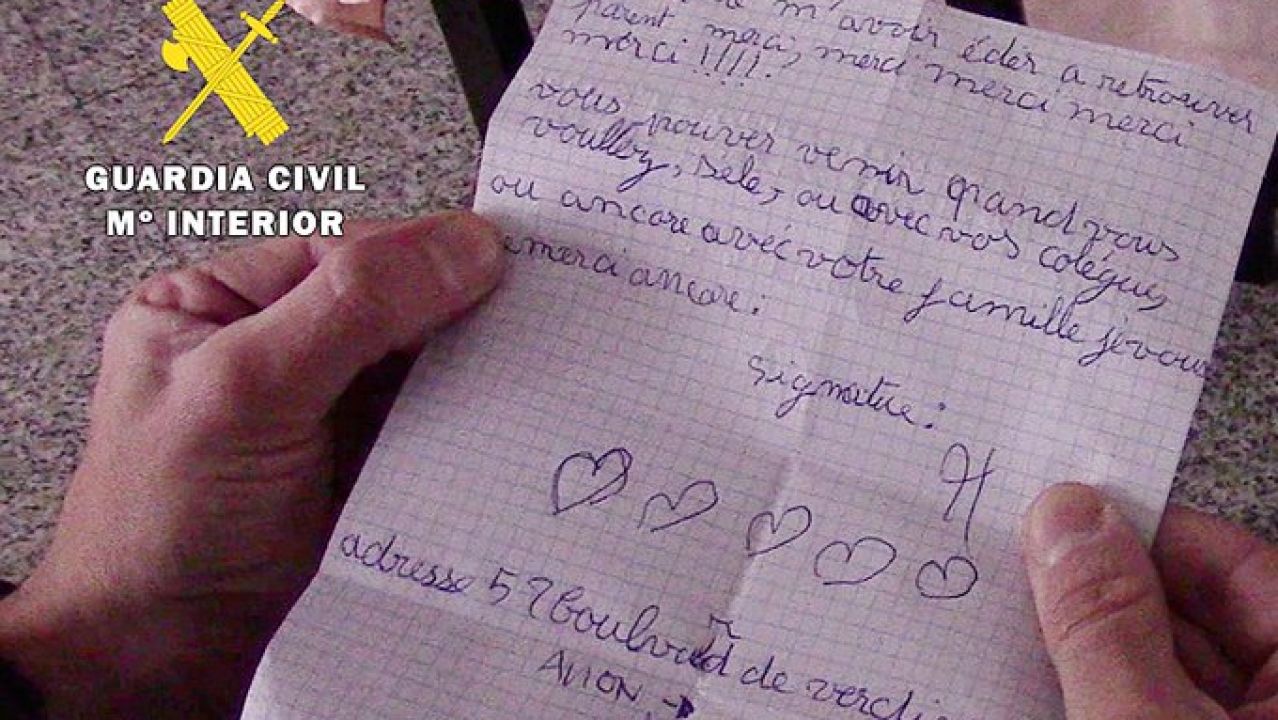 GUARDIA CIVIL
Mº INTERIOR
m'avoir éder a retrouver
parent merci, merci merci merci
merci !!!!.
vous pouver venir quand vous
voullez, sele, ou avec vos colégue,
ou ancore avec votre famille je vous
emerci ancore :
signatue :
H
adresse 57 boulvard de verdi
AVION →